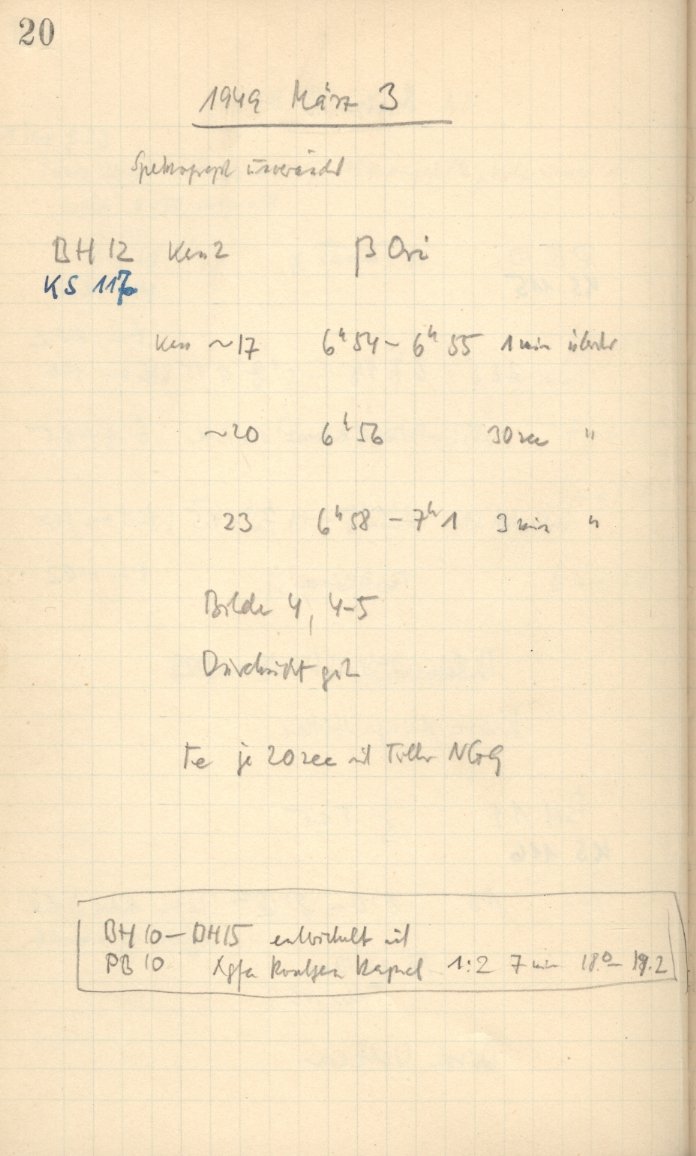 20
1949 März 3
Spektrograph unverändert
BH 12 Kass 2 β Ori
KS 117
~17 6ʰ54 – 6ʰ55 1 min
~20 6ʰ56 30 sec "
23 6ʰ58 – 7ʰ1 3 min "
Bilder 4, 4–5
Durchsicht gut
Fe je 20 sec mit
BH 10 – BH 15 entwickelt mit
PB 10 Agfa 1:2 7 min 18.⁰ – 18.2